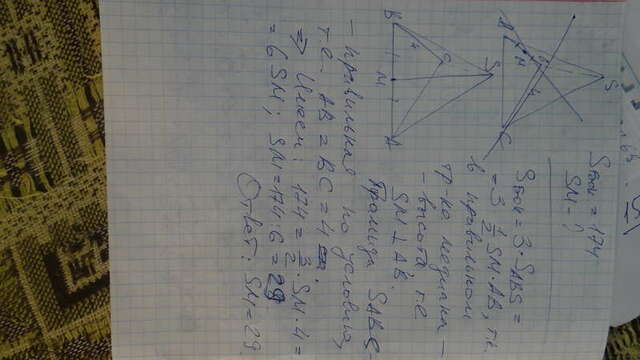 Sбок = 174
SM - ?
Sбок = 3·S ABS =
= 3 1/2 SM·AB, т.к.
в правильном
тр-ке медиана -
- высота, т.е.
SM ⊥ AB.
Пирамида SABC -
- правильная по условию,
т.е. AB = BC = 4
⇒ Имеем: 174 = 3/2 · SM · 4 =
= 6 SM; SM = 174:6 = 29
Ответ: SM = 29.
B
M
4
C
S
B
4
C
M
A
S